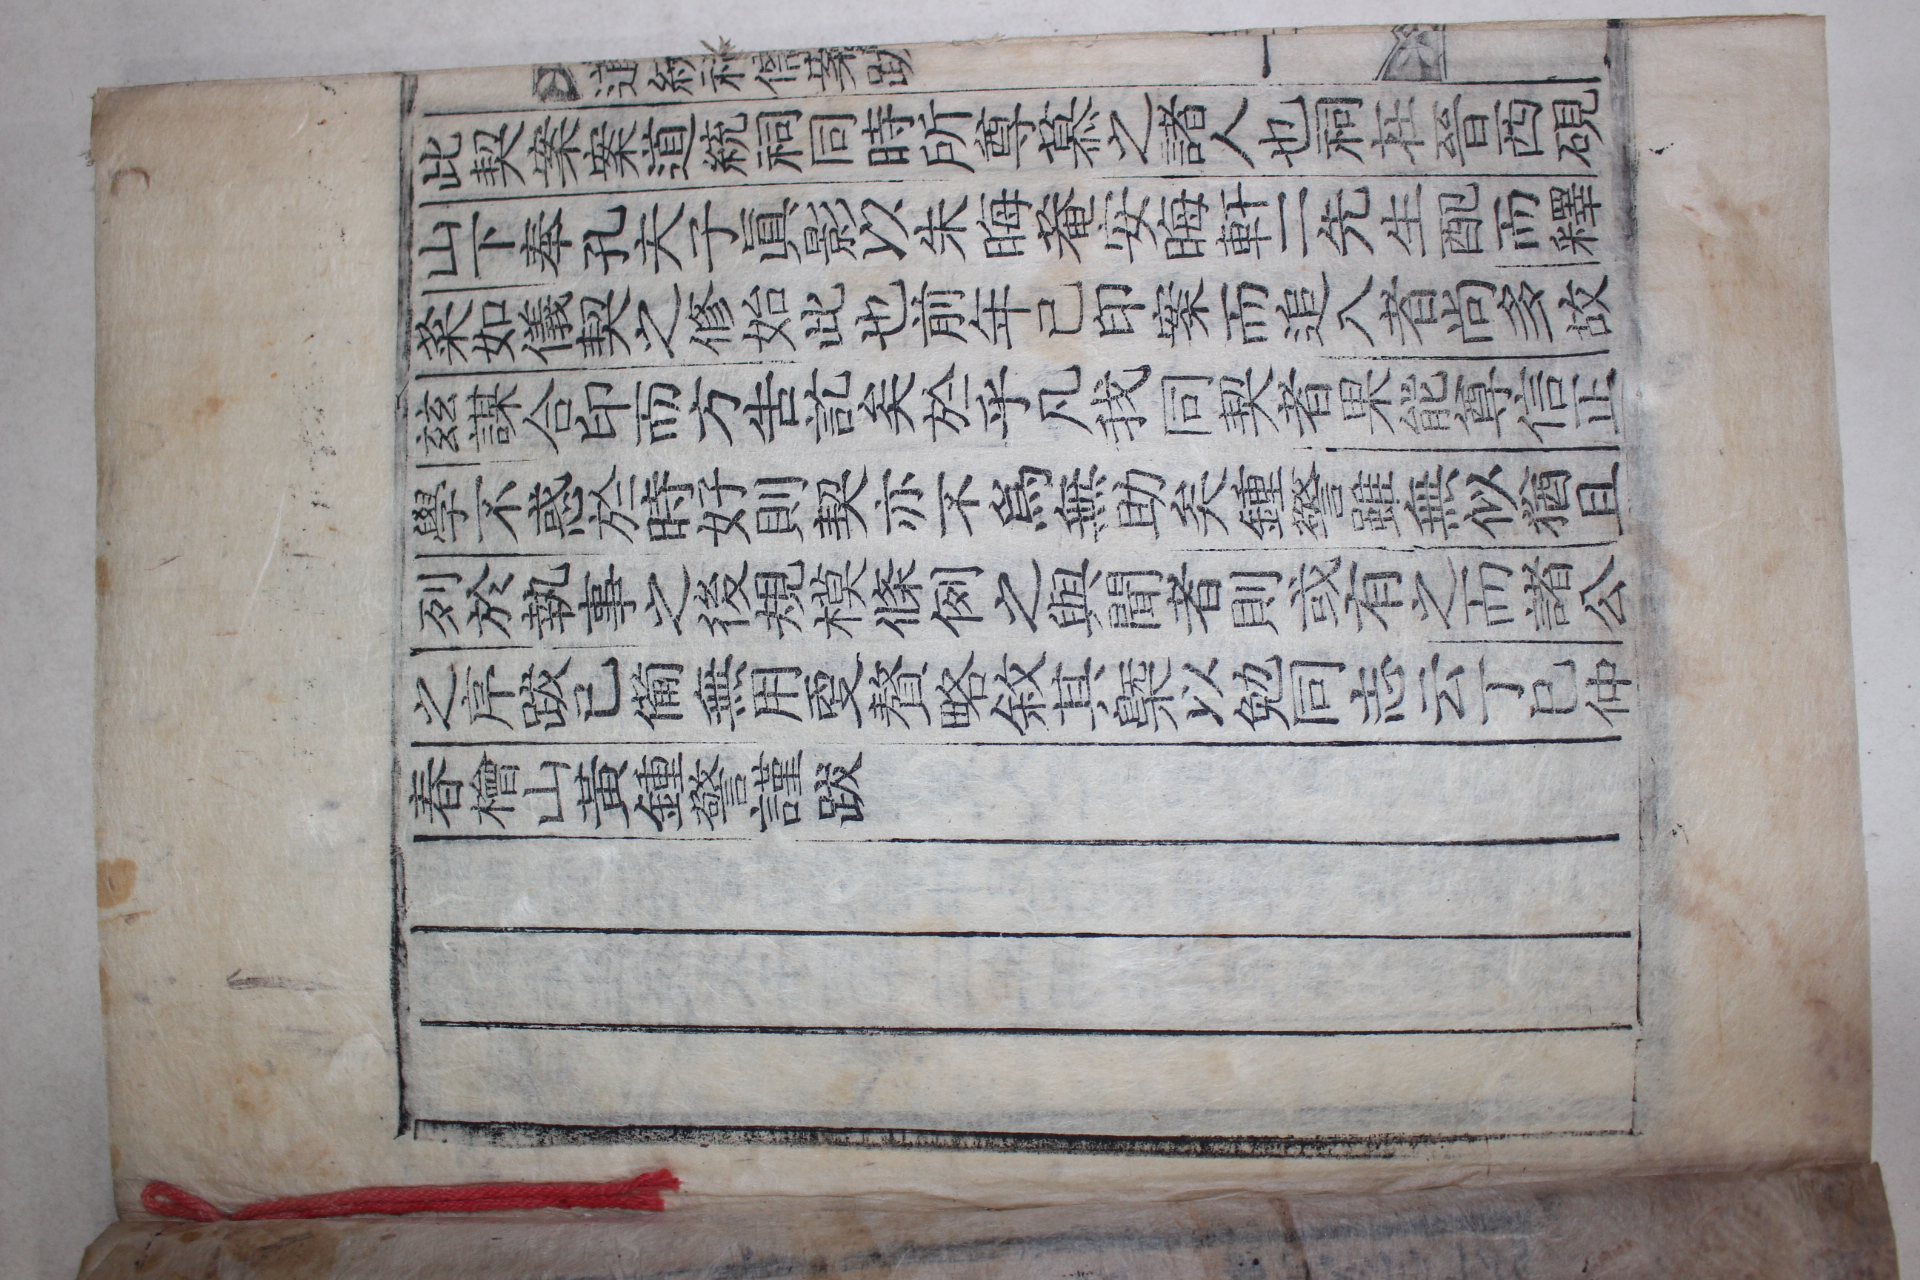 道統祠修案跋 一
此契案案道統祠同時所尊慕之諸人也祠在晉西硯
山下奉孔夫子眞影以朱晦菴安晦軒二先生配而釋
菜如儀契之修始此也前年已印案而追入者尚多故
玆謀合印而方告訖矣於乎凡我同契者果能尊信正
學不惑於時好則契亦不爲無助矣鍾警雖無似猶且
列於執事之後規模條例之與聞者則或有之而諸公
之序跋已備無用更贅略敘其槩以勉同志云丁巳仲
春檜山黃鍾警謹跋